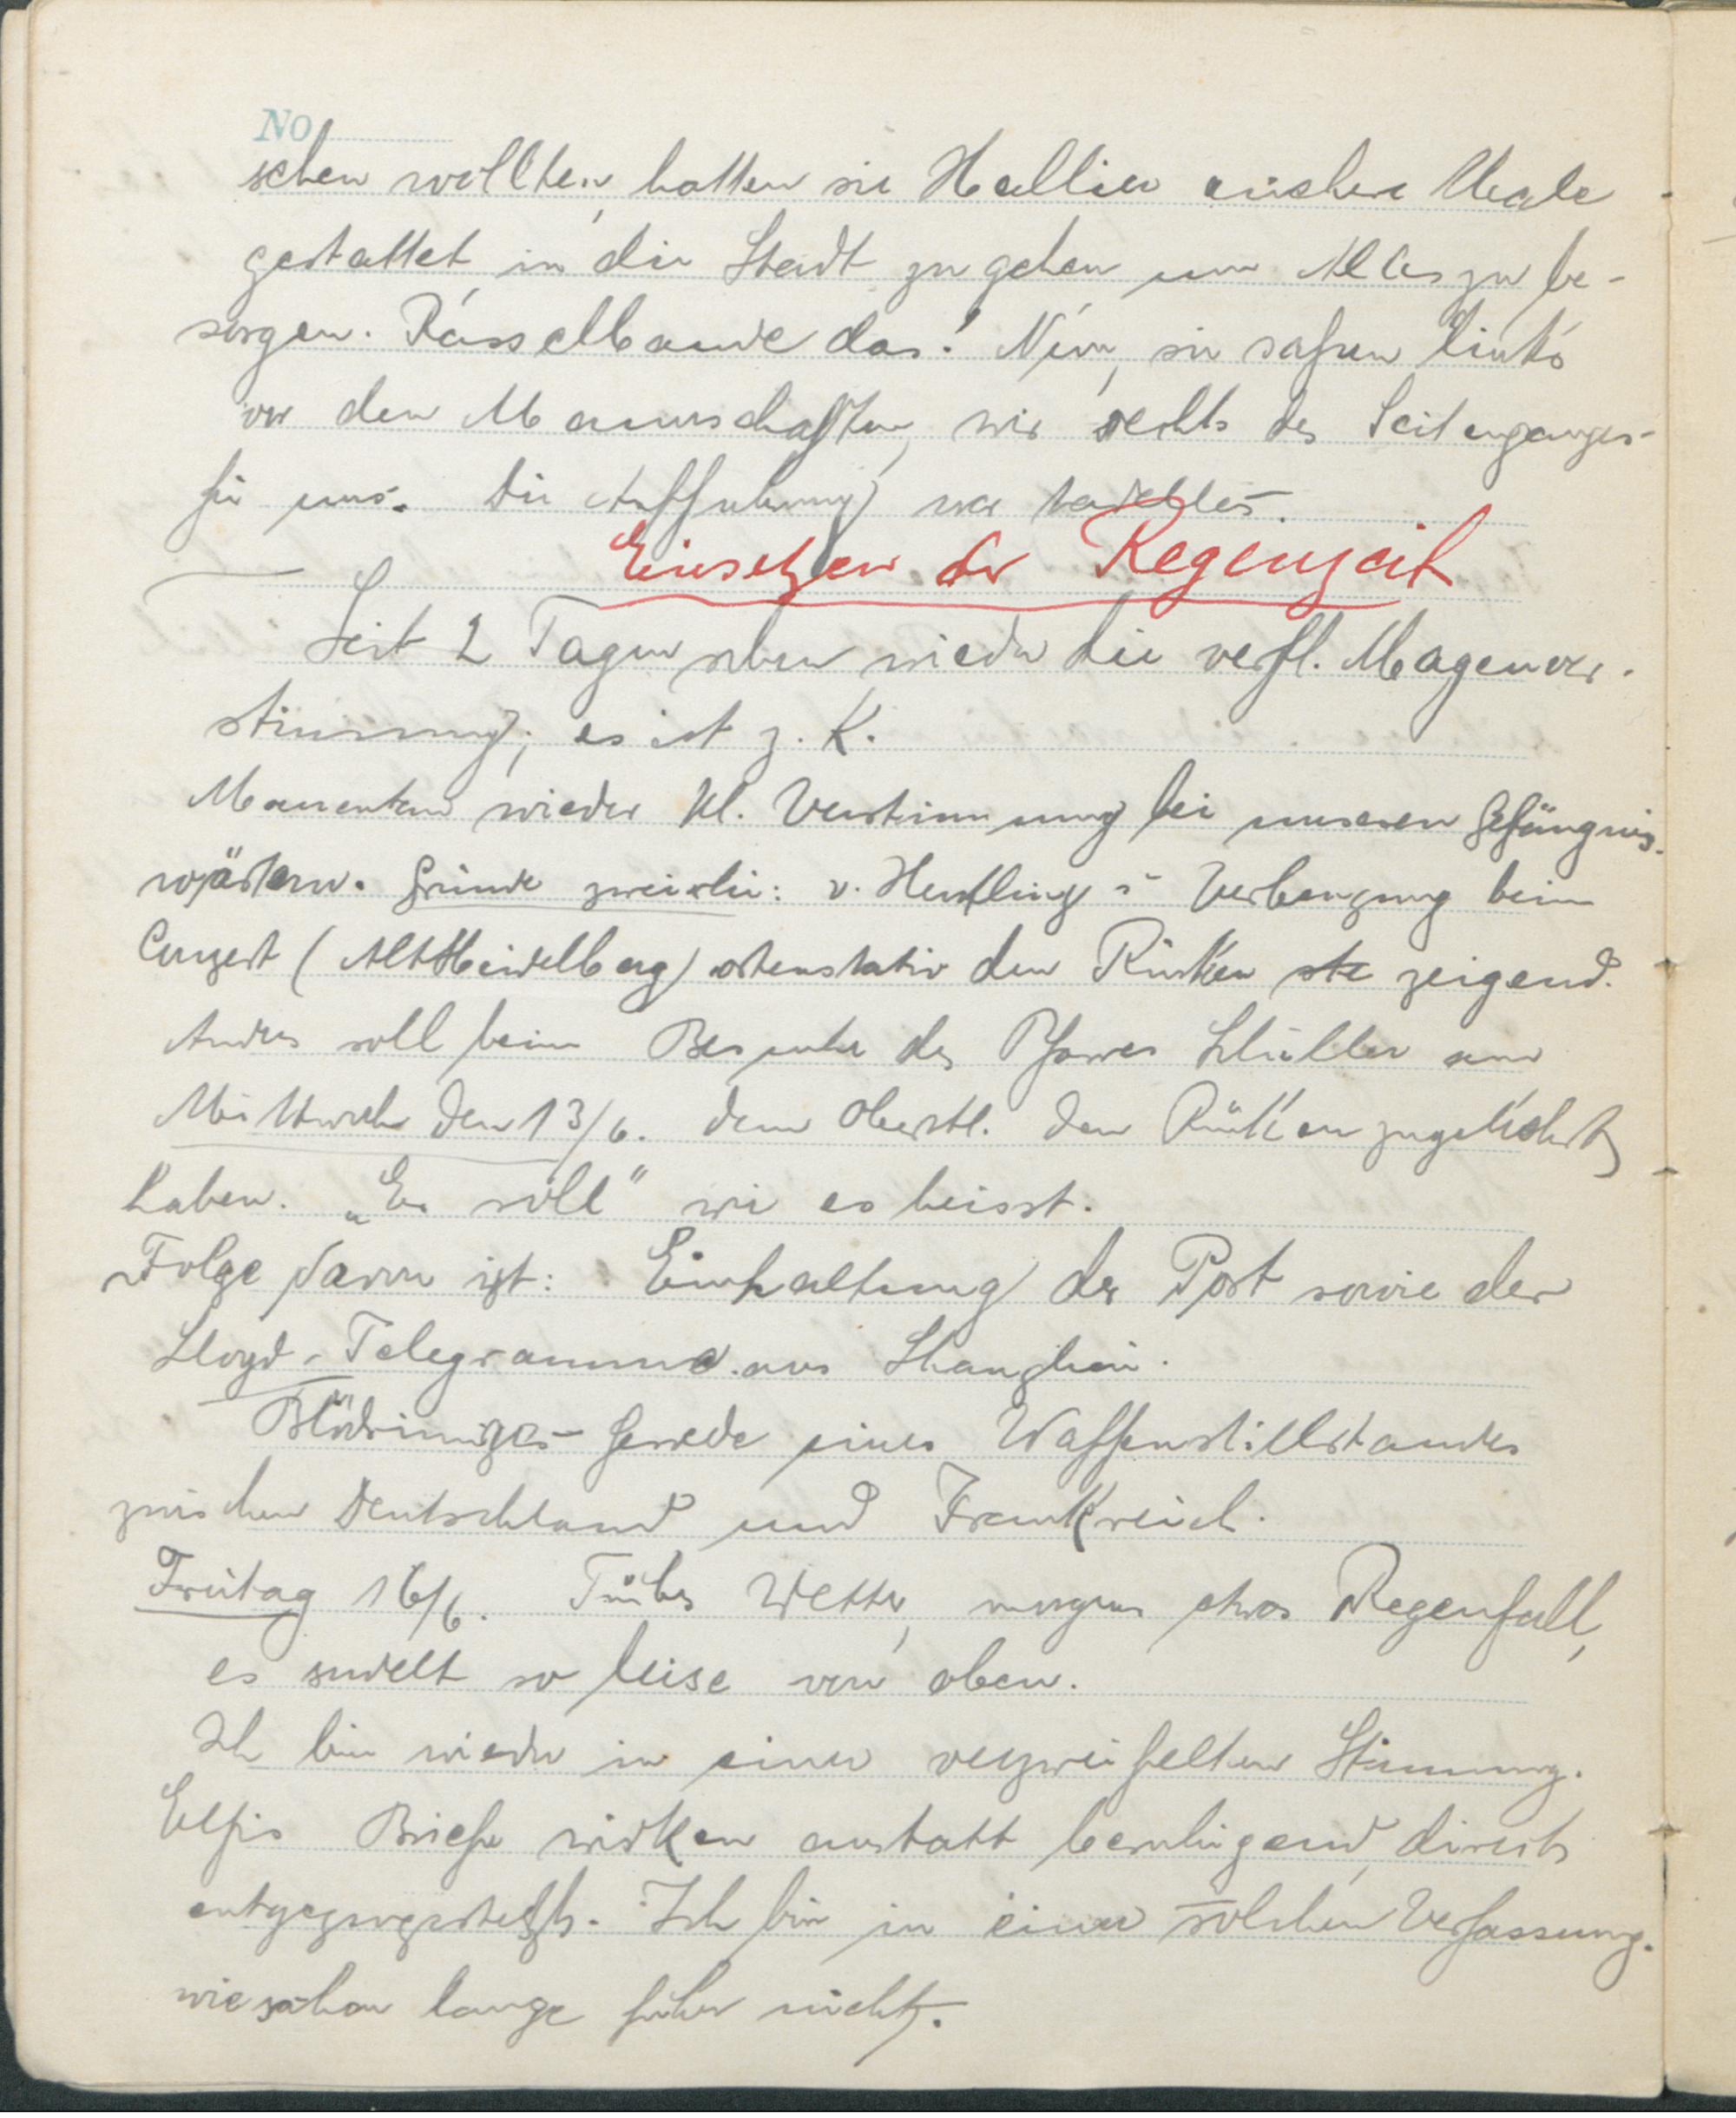 No
sehen wollten, hatten sie Hallier mehrere Male
gestattet, in die Stadt zu gehen um Alles zu be-
sorgen. Rasselbande das! Nun, sie saßen links
vor den Mannschaften, wir rechts des Seitenganges
für uns. Die Aufführung war tadellos.
Einsetzen der Regenzeit
Seit 2 Tagen schon wieder die verfl. Magenver-
stimmung; es ist z. K.
Momentan wieder kl. Verstimmung bei unseren Gefängnis-
wärtern. Gründe zweierlei: v. Hertling's Verbeugung beim
Conzert (Alt Heidelberg) ostentativ den Rücken zeigend.
Anders soll beim Besuche des Pfarrer Schiller am
Mittwoch den 13/6. dem Oberstl. den Rücken zugekehrt
haben. „Er soll" wie es heisst.
Folge davon ist: Einhaltung der Post sowie der
Lloyd-Telegramme aus Shanghai.
Blödsinniges Gerede eines Waffenstillstandes
zwischen Deutschland und Frankreich.
Freitag 16/6. Trübes Wetter, morgens etwas Regenfall,
es sudelt so leise von oben.
Ich bin wieder in einer verzweifelten Stimmung.
Elfis Briefe wirken anstatt beruhigend, direct
entgegengesetzt. Ich bin in einer solchen Verfassung.
wie schon lange früher nicht.